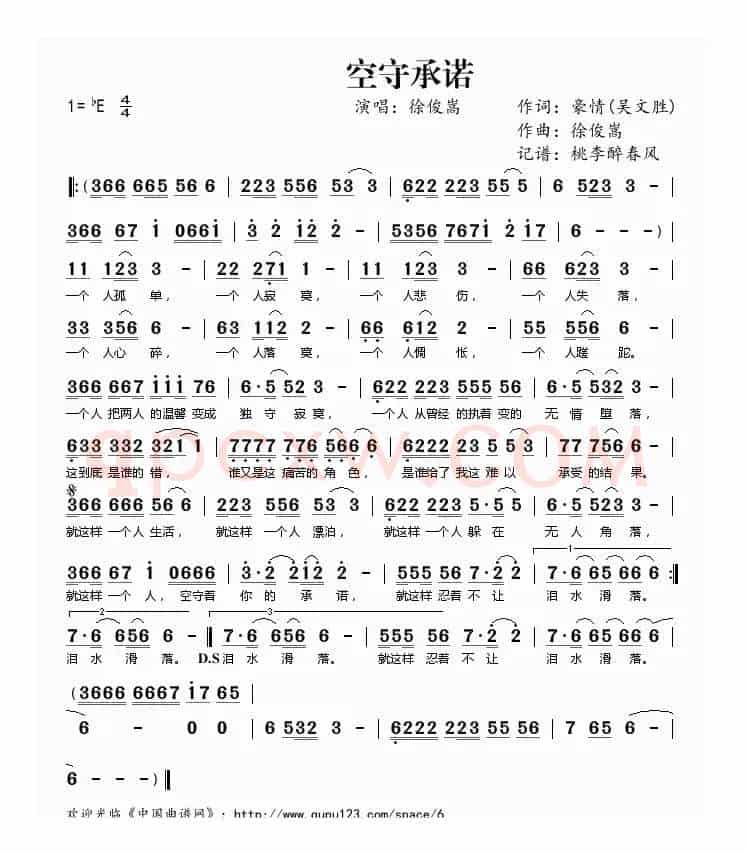 空守承诺
1=♭E 4/4 演唱：徐俊嵩 作词：豪情(吴文胜)
作曲：徐俊嵩
记谱：桃李醉春风
‖:(366 665 56 6 | 223 556 53 3 | 622 223 55 5 | 6 523 3 - |
366 67 1 0661 | 3 2 12 2 - | 5356 7671 2 17 | 6 - - -) |
11 123 3 - | 22 271 1 - | 11 123 3 - | 66 623 3 - |
一个 人孤 单， 一个 人寂 寞， 一个 人悲 伤， 一个 人失 落，
33 356 6 - | 63 112 2 - | 66 612 2 - | 55 556 6 - |
一个 人心 碎， 一个 人落 寞， 一个 人惆 怅， 一个 人蹉 跎。
366 667 111 76 | 6·5 52 3 - | 622 223 555 56 | 6·5 532 3 - |
一个人 把两人 的温馨 变成 独守 寂寞， 一个人 从曾经 的执着 变的 无情 堕落，
633 332 321 1 | 7777 776 566 6 | 6222 23 5 53 | 77 756 6 - |
这到底 是谁的 错， 谁又是这 痛苦的 角 色， 是谁给了 我这 难以 承受 的结 果。
366 666 56 6 | 223 556 53 3 | 622 223 55 5 | 6·5 523 3 - |
就这样 一个人 生活， 就这样 一个人 漂泊， 就这样 一个人 躲在 无人 角落，
366 67 1 0666 | 3·2 212 2 - | 555 56 7·2 2 | 7·6 65 66 6 :‖
就这样 一个 人，空守着 你的 承 诺， 就这样 忍着 不让 泪水 滑落。
7·6 656 6 - ‖ 7·6 656 6 - | 555 56 7·2 2 | 7·6 65 66 6 |
泪水 滑落。 D.S 泪水 滑落。 就这样 忍着 不让 泪水 滑落。
(3666 6667 17 65 |
6 - 0 0 | 6 532 3 - | 6222 223 55 56 | 7 65 6 - |
6 - - -) ‖
欢迎光临《中国曲谱网》：http://www.qupu123.com/space/6
qpcxw.com